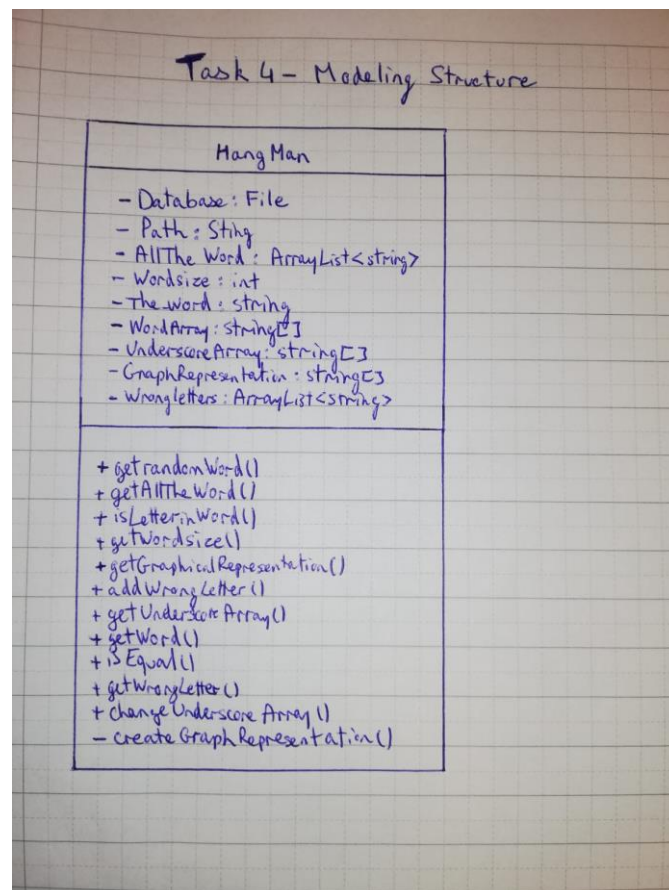 Task 4 - Modeling Structure
HangMan
- Database : File
- Path : Sting
- AllThe Word : ArrayList<string>
- Wordsize : int
- The word : string
- WordArray : string[]
- UnderscoreArray : string[]
- GraphRepresentation : string[]
- Wrongletters : ArrayList<string>
+ getrandomWord()
+ getAllTheWord()
+ isLetterinWord()
+ getWordsize()
+ getGraphicalRepresentation()
+ addWrongLetter()
+ getUnderscoreArray()
+ getWord()
+ isEqual()
+ getWrongLetter()
+ changeUnderscoreArray()
- createGraphRepresentation()